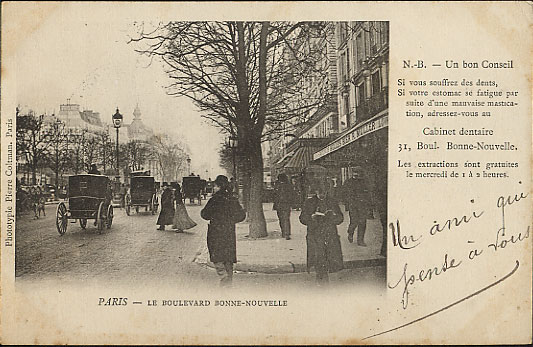 N.-B. — Un bon Conseil
Si vous souffrez des dents,
Si votre estomac se fatigue par
suite d'une mauvaise mastica-
tion, adressez-vous au
Cabinet dentaire
31, Boul. Bonne-Nouvelle.
Les extractions sont gratuites
le mercredi de 1 à 2 heures.
Un ami qui
pense à vous
Phototypie Pierre Coltman, Paris
PARIS — LE BOULEVARD BONNE-NOUVELLE